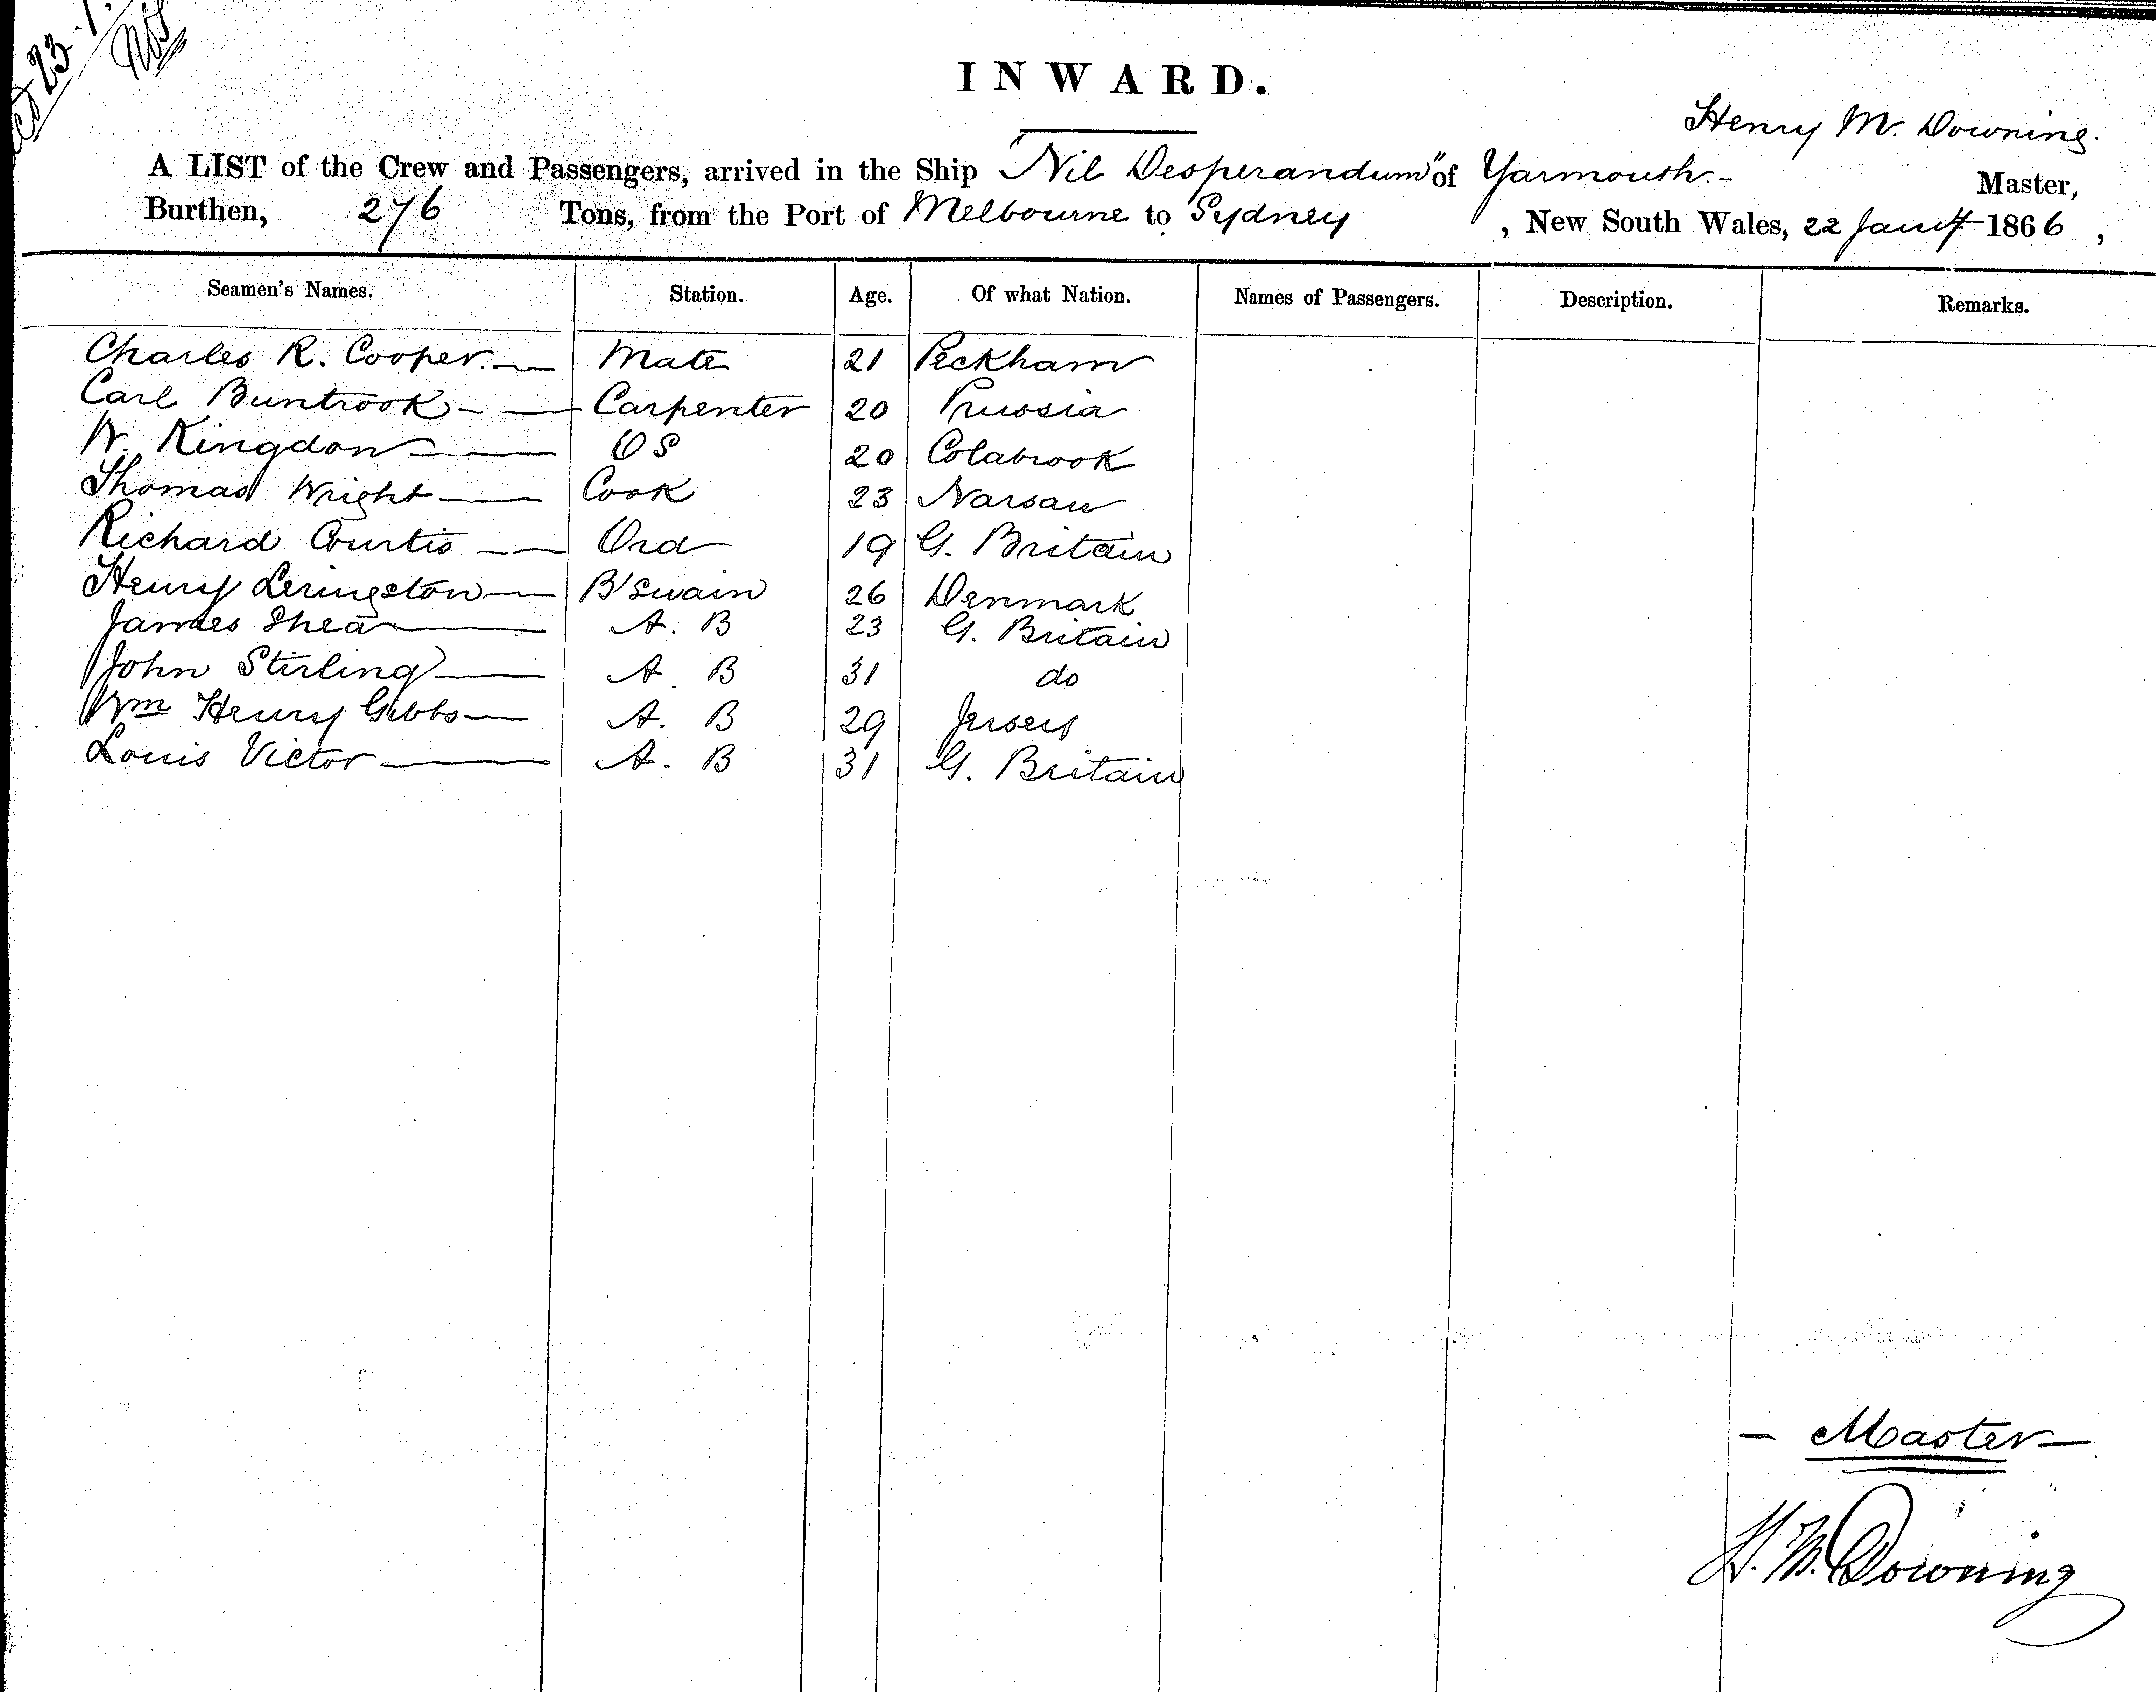 23.1.
INWARD.
Henry M. Downing.
A LIST of the Crew and Passengers, arrived in the Ship "Nil Desperandum" of Yarmouth.- Master,
Burthen, 276 Tons, from the Port of Melbourne to Sydney, New South Wales, 22 Jany 1866,
Seamen's Names. Station. Age. Of what Nation. Names of Passengers. Description. Remarks.
Charles R. Cooper. Mate 21 Peckham
Carl Buntrook Carpenter 20 Prussia
W. Kingdon OS 20 Colabrook
Thomas Wright Cook 23 Narsau
Richard Courtis Ord 19 G. Britain
Henry Leringston B'swain 26 Denmark
James Shea A. B 23 G. Britain
John Stirling A. B 31 do
Wm Henry Gibbs A. B 29 Jersey
Louis Victor A. B 31 G. Britain
- Master -
H. M. Downing